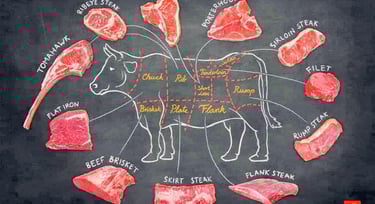 RIBEYE STEAK
PORTERHOUSE
SIRLOIN STEAK
TOMAHAWK
FILET
Chuck
Rib
Tenderloin
Short
Loin
Rump
Brisket
Plate
Flank
FLAT IRON
RUMP STEAK
BEEF BRISKET
SKIRT STEAK
FLANK STEAK